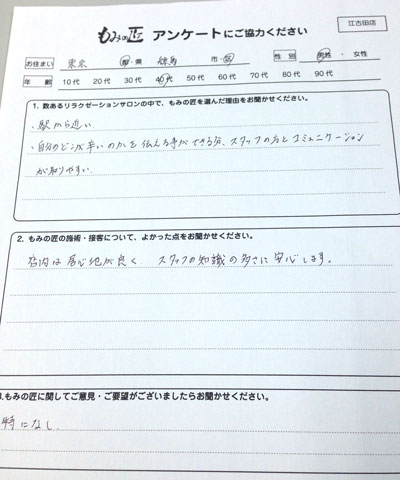 もみの匠 アンケートにご協力ください
江古田店
お住まい 東京 都・県 練馬 市・区 性別 男性・女性
年齢 10代 20代 30代 40代 50代 60代 70代 80代 90代
1. 数あるリラクゼーションサロンの中で、もみの匠を選んだ理由をお聞かせください。
・駅から近い
・自分のどこが辛いのかを伝える事ができる分、スタッフの方とコミュニケーション
が取りやすい
2. もみの匠の施術・接客について、よかった点をお聞かせください。
店内は居心地が良く スタッフの知識の多さに安心します。
3.もみの匠に関してご意見・ご要望がございましたらお聞かせください。
特になし